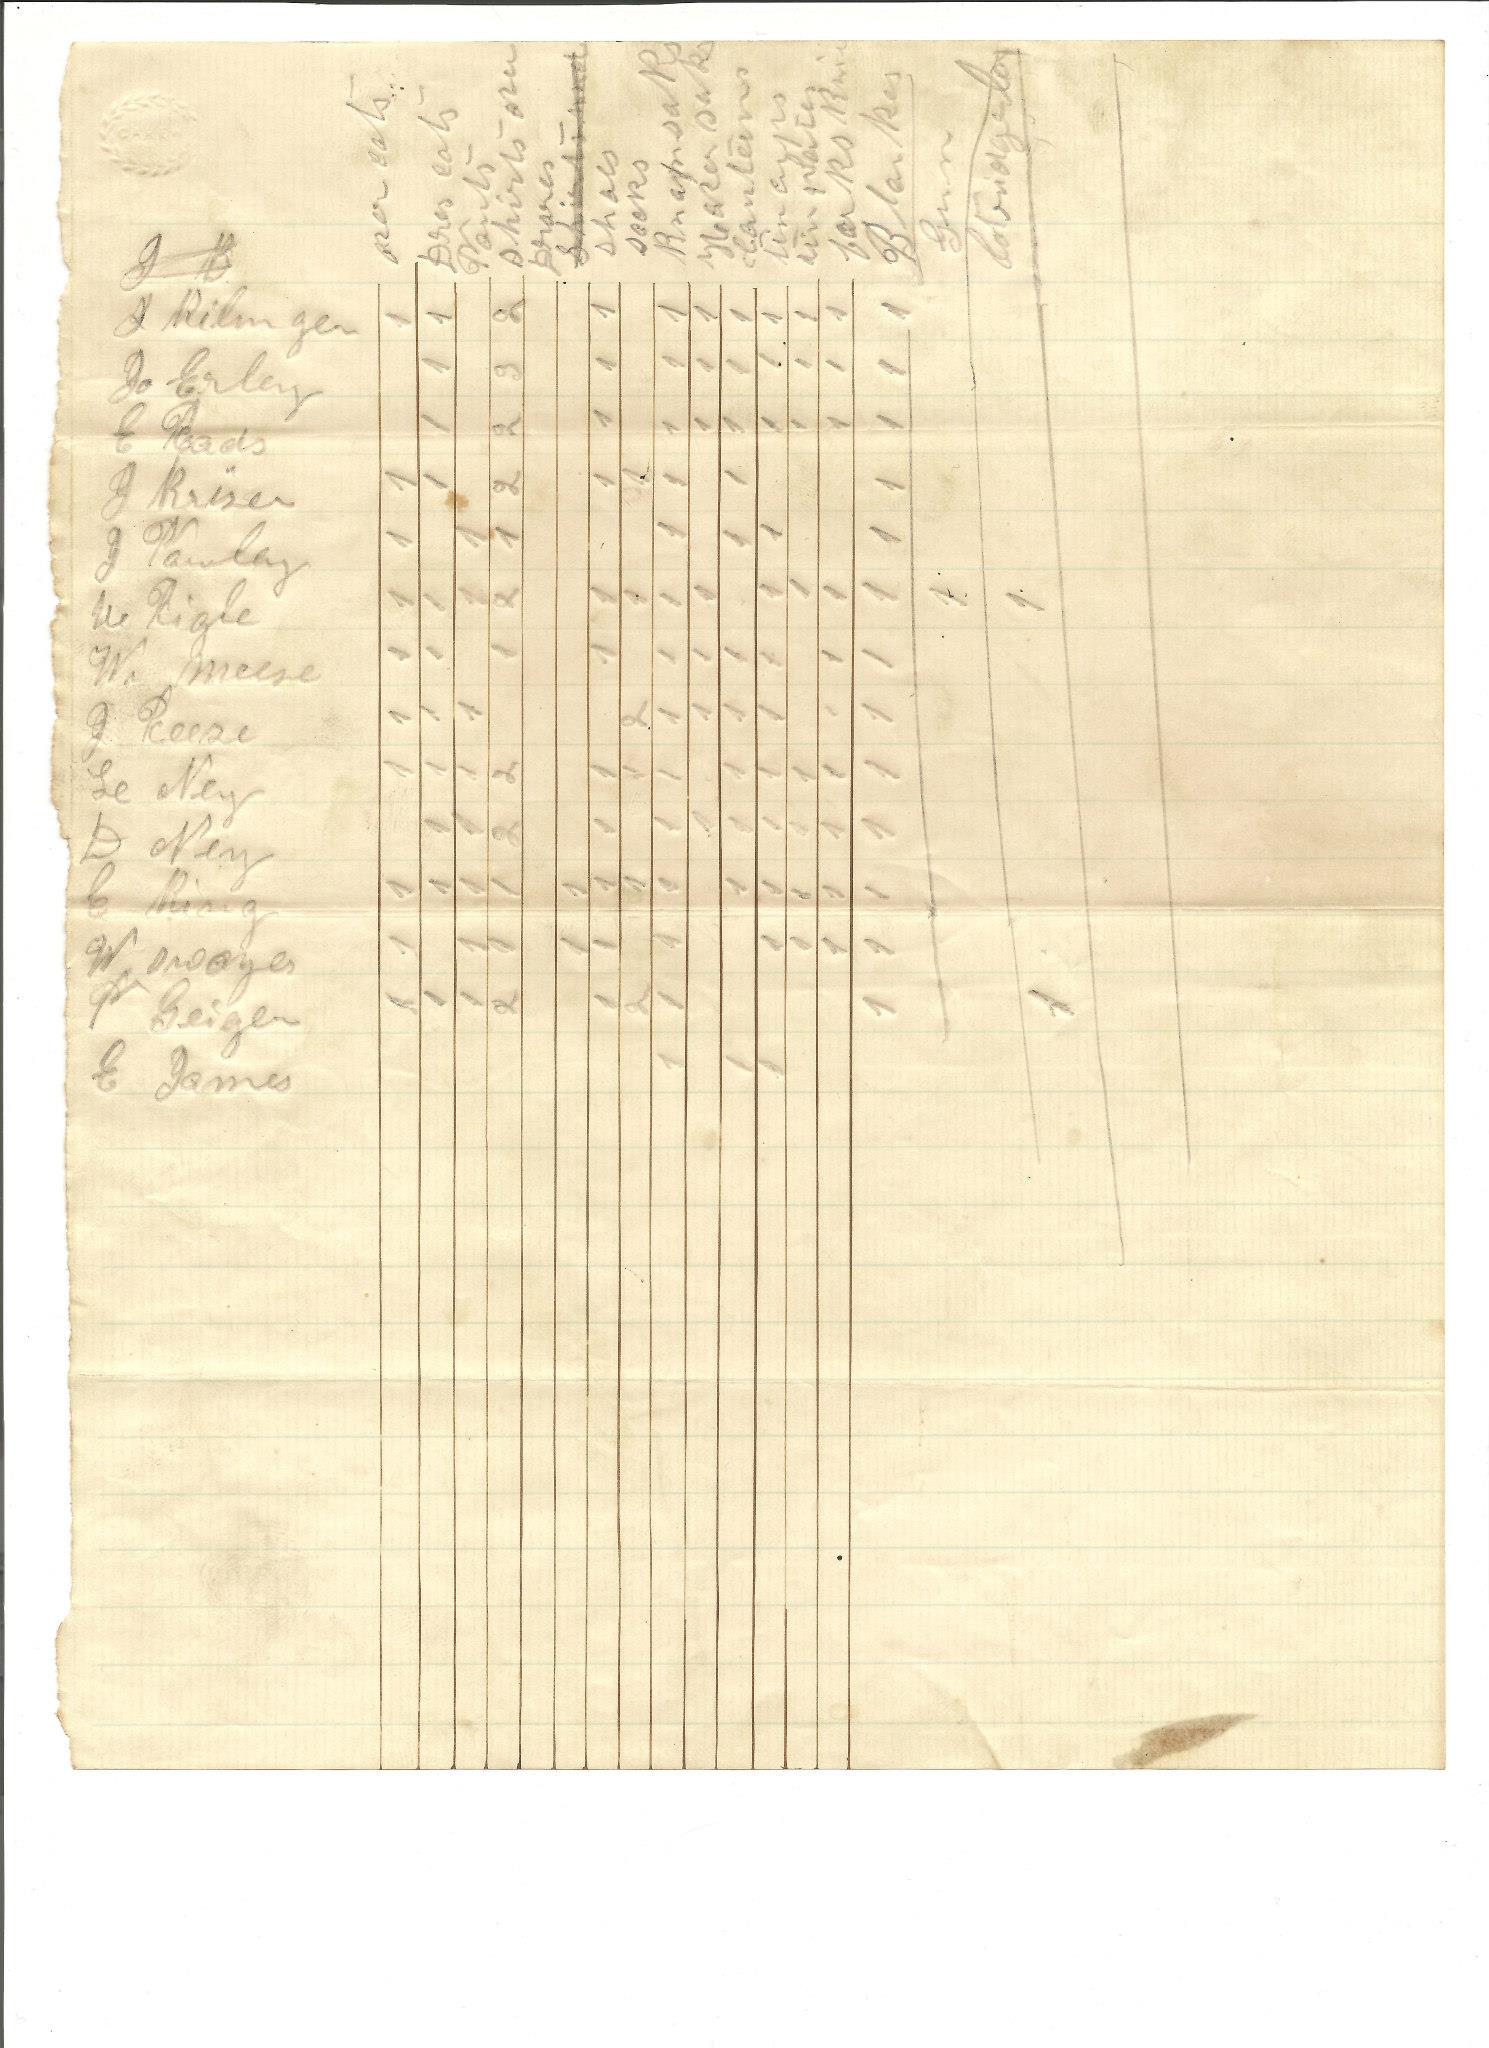 over cots
Dres cots
Pants
shirts over
Drares
shoes
socks
Knapsaks
Haversaks
Canteens
tin cups
tin plates
Blankes
Gunn
J Kilmger 1 1 2 1 1 1 1 1 1 1 1
Jo Erley 1 3 1 1 1 1 1 1 1 1
E Rads 1 2 1 1 1 1 1 1 1 1
J Kriser 1 1 2 1 1 1 1 1
J Pawley 1 1 1 1 1 1 1
W Rigle 1 1 1 2 1 1 1 1 1 1 1 1 1 1
W. Meese 1 1 1 1 1 1 1 1 1 1
J Reese 1 1 1 2 1 1 1 1 1 1
Le Ney 1 1 1 2 1 1 1 1 1 1 1 1
D Ney 1 1 2 1 1 1 1 1 1 1 1
E King 1 1 1 1 1 1 1 1 1 1 1 1 1
W 1 1 1 1 1 1 1 1 1 1
P Geiger 1 1 1 2 1 2 1 1 1
E James 1 1 1